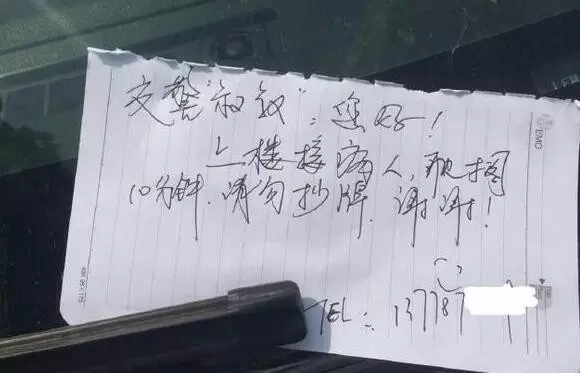 交警"叔叔":您好!
上楼接病人,耽搁
10分钟.请勿抄牌.谢谢!
TEL: 13778
EMO